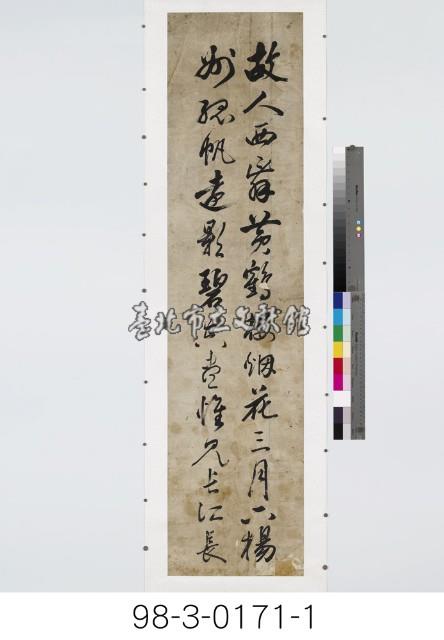 故人西辭黃鶴樓烟花三月下楊
州孤帆遠影碧盡惟見長江長
臺北市立文獻館
98-3-0171-1